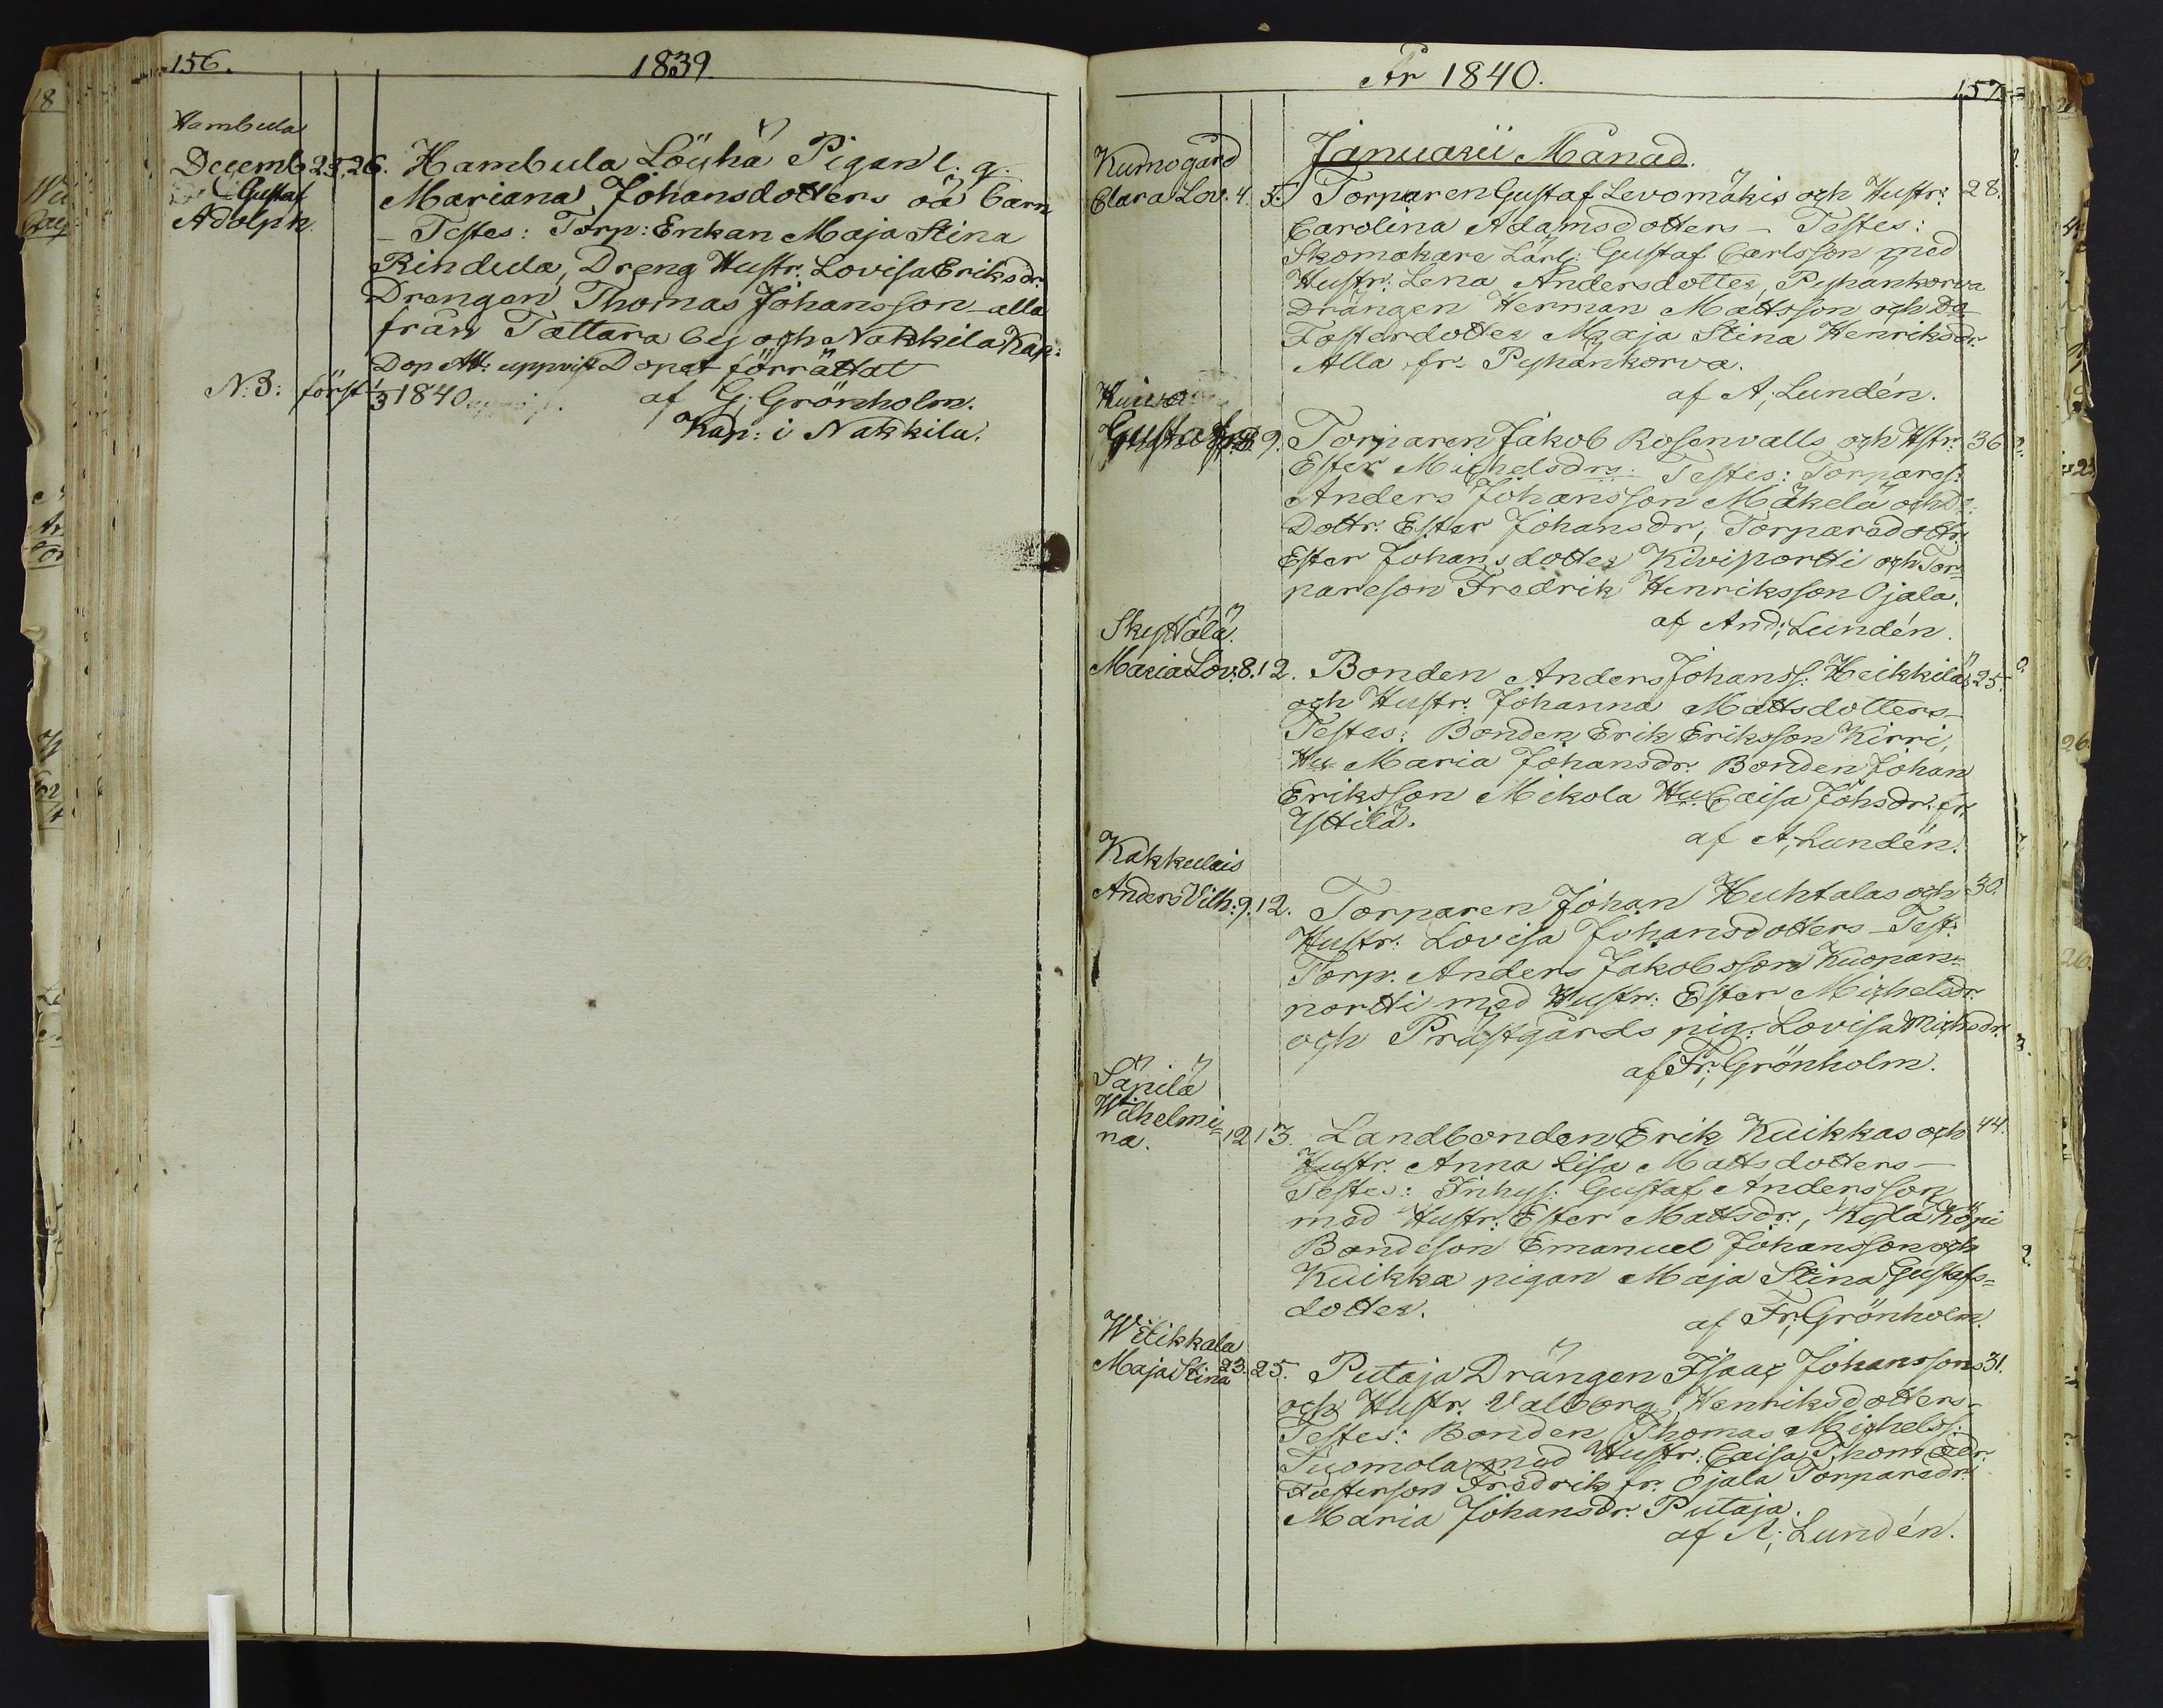 156.
1839
Hambula
Decemb 25. 26. Hambula Löyhä Pigan l. q.
Gustaf
Adolph.
Mariana Johansdotters oä barn
– Testes: Torp: Enkan Maja Stina
Rindula, Dreng Hustr. Lovisa Eriksdr.
Drengen Thomas Johansson – alla
från Tattara by och Nakkila Kap:
Dop Att: uppvist Dopet förrättat
N.B: först 1/3 1840
af G; Grönholm.
Kap: i Nakkila.
År 1840.
157.
Januarii Månad.
Kumogård
Clara Lov. 4. 5. Torparen Gustaf Levomäkis och Hustr: 28.
Carolina Adamsdotters – Testes:
Skomakare Lärl: Gustaf Carlsson med
Hustr: Lena Andersdotter, Pyhänkorva
Drängen Herman Mattsson och Do
Fosterdotter Maja Stina Henriksdr.
Alla fr. Pyhänkorva.
af A; Lundén.
Kuivo
Gustaf 9. Torparen Jakob Rosenvalls och Hstr: 36
Ester Michelsdrs: Testes: Torpares:
Anders Johansson Mäkelä och Do:
Dottr: Ester Johansdr, Torparedottr:
Ester Johansdotter Kiviportti och Tor=
pareson Fredrik Henriksson Ojala.
af And; Lundén.
Skyttälä.
Maria Lov: 8. 12. Bonden Anders Johanss: Heikkiläs 25.
och Hustr: Johanna Mattsdotters –
Testes: Bonden Erik Eriksson Kirri,
Hu Maria Johansdr. Bonden Johan
Eriksson Mikola Hu Caisa Johsdr. fr.
Yttilä.
af A; Lundén.
Kakkulais
Anders Vilh: 9. 12. Torparen Johan Huhtalas och 30.
Hustr: Lovisa Johansdotters – Test:
Torp. Anders Jakobsson Kuopan=
portti med Hustr: Ester Michelsdr.
och Prästgårds pig: Lovisa Michsdr.
af Fr; Grönholm.
Säpilä
Wilhelmi=
na. 12 13. Landbonden Erik Kuikkas och 44.
Hustr. Anna Lisa Mattsdotters –
Testes: Inhys: Gustaf Andersson
med Hustr: Ester Mattsdr., Kylä Köpi
Bondeson Emanuel Johansson och
Kuikka pigan Maja Stina Gustafs=
dotter.
af Fr; Grönholm.
Witikkala
Maja Stina 23. 25. Putaja Drängen Isaac Johanssons 31.
och Hustr. Valborg Henriksdotters –
Testes: Bonden Thomas Michelss:
Tuomola med Hustr: Caisa Thomædr.
Fosterson Fredrik fr. Ojala Torparedr.
Maria Johansdr. Putaja.
af A; Lundén.